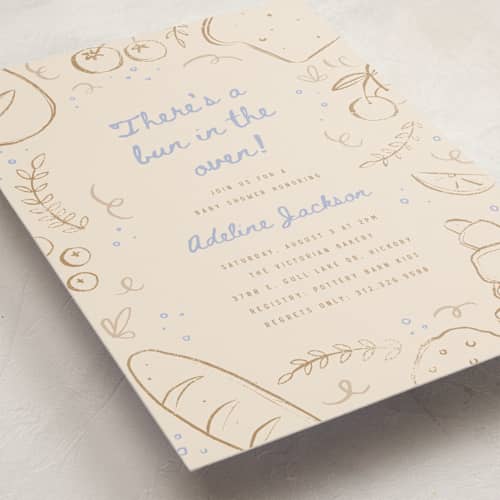 There's a
bun in the
oven!
JOIN US FOR A
BABY SHOWER HONORING
Adeline Jackson
SATURDAY, AUGUST 3 AT 2PM
THE VICTORIAN BAKERY
3788 E. GULL LAKE DR. HICKORY
REGISTRY: POTTERY BARN KIDS
REGRETS ONLY: 312.326.9088